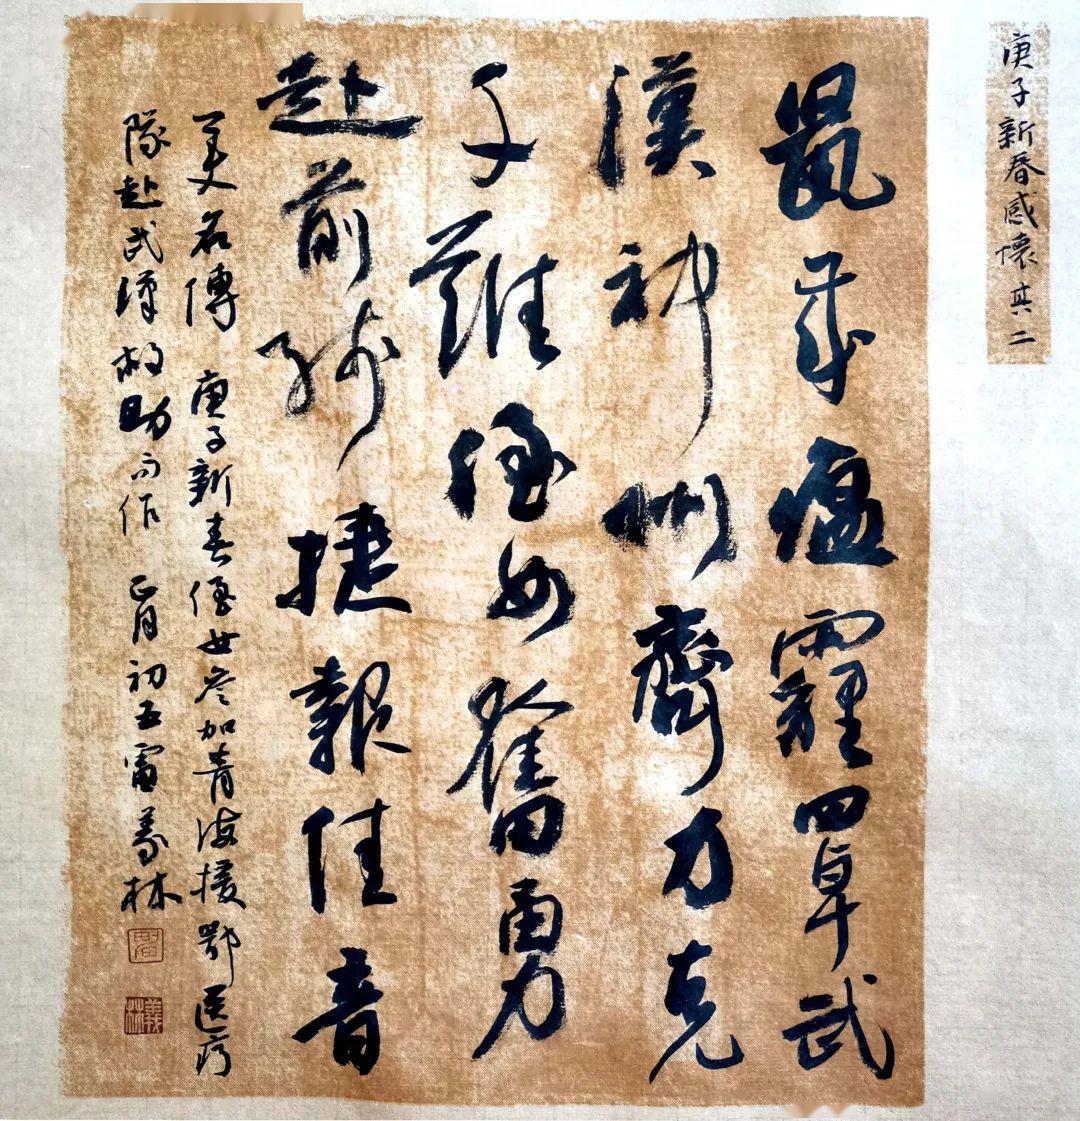 庚子新春感懷 其二
鼠歲瘟霾罩武
漢神州齊力克
千難侄女奮勇
赴前線捷報佳音
美名傳 庚子新春侄女参加青海援鄂医疗
隊赴武漢救助而作 正月初五雷義林
義林